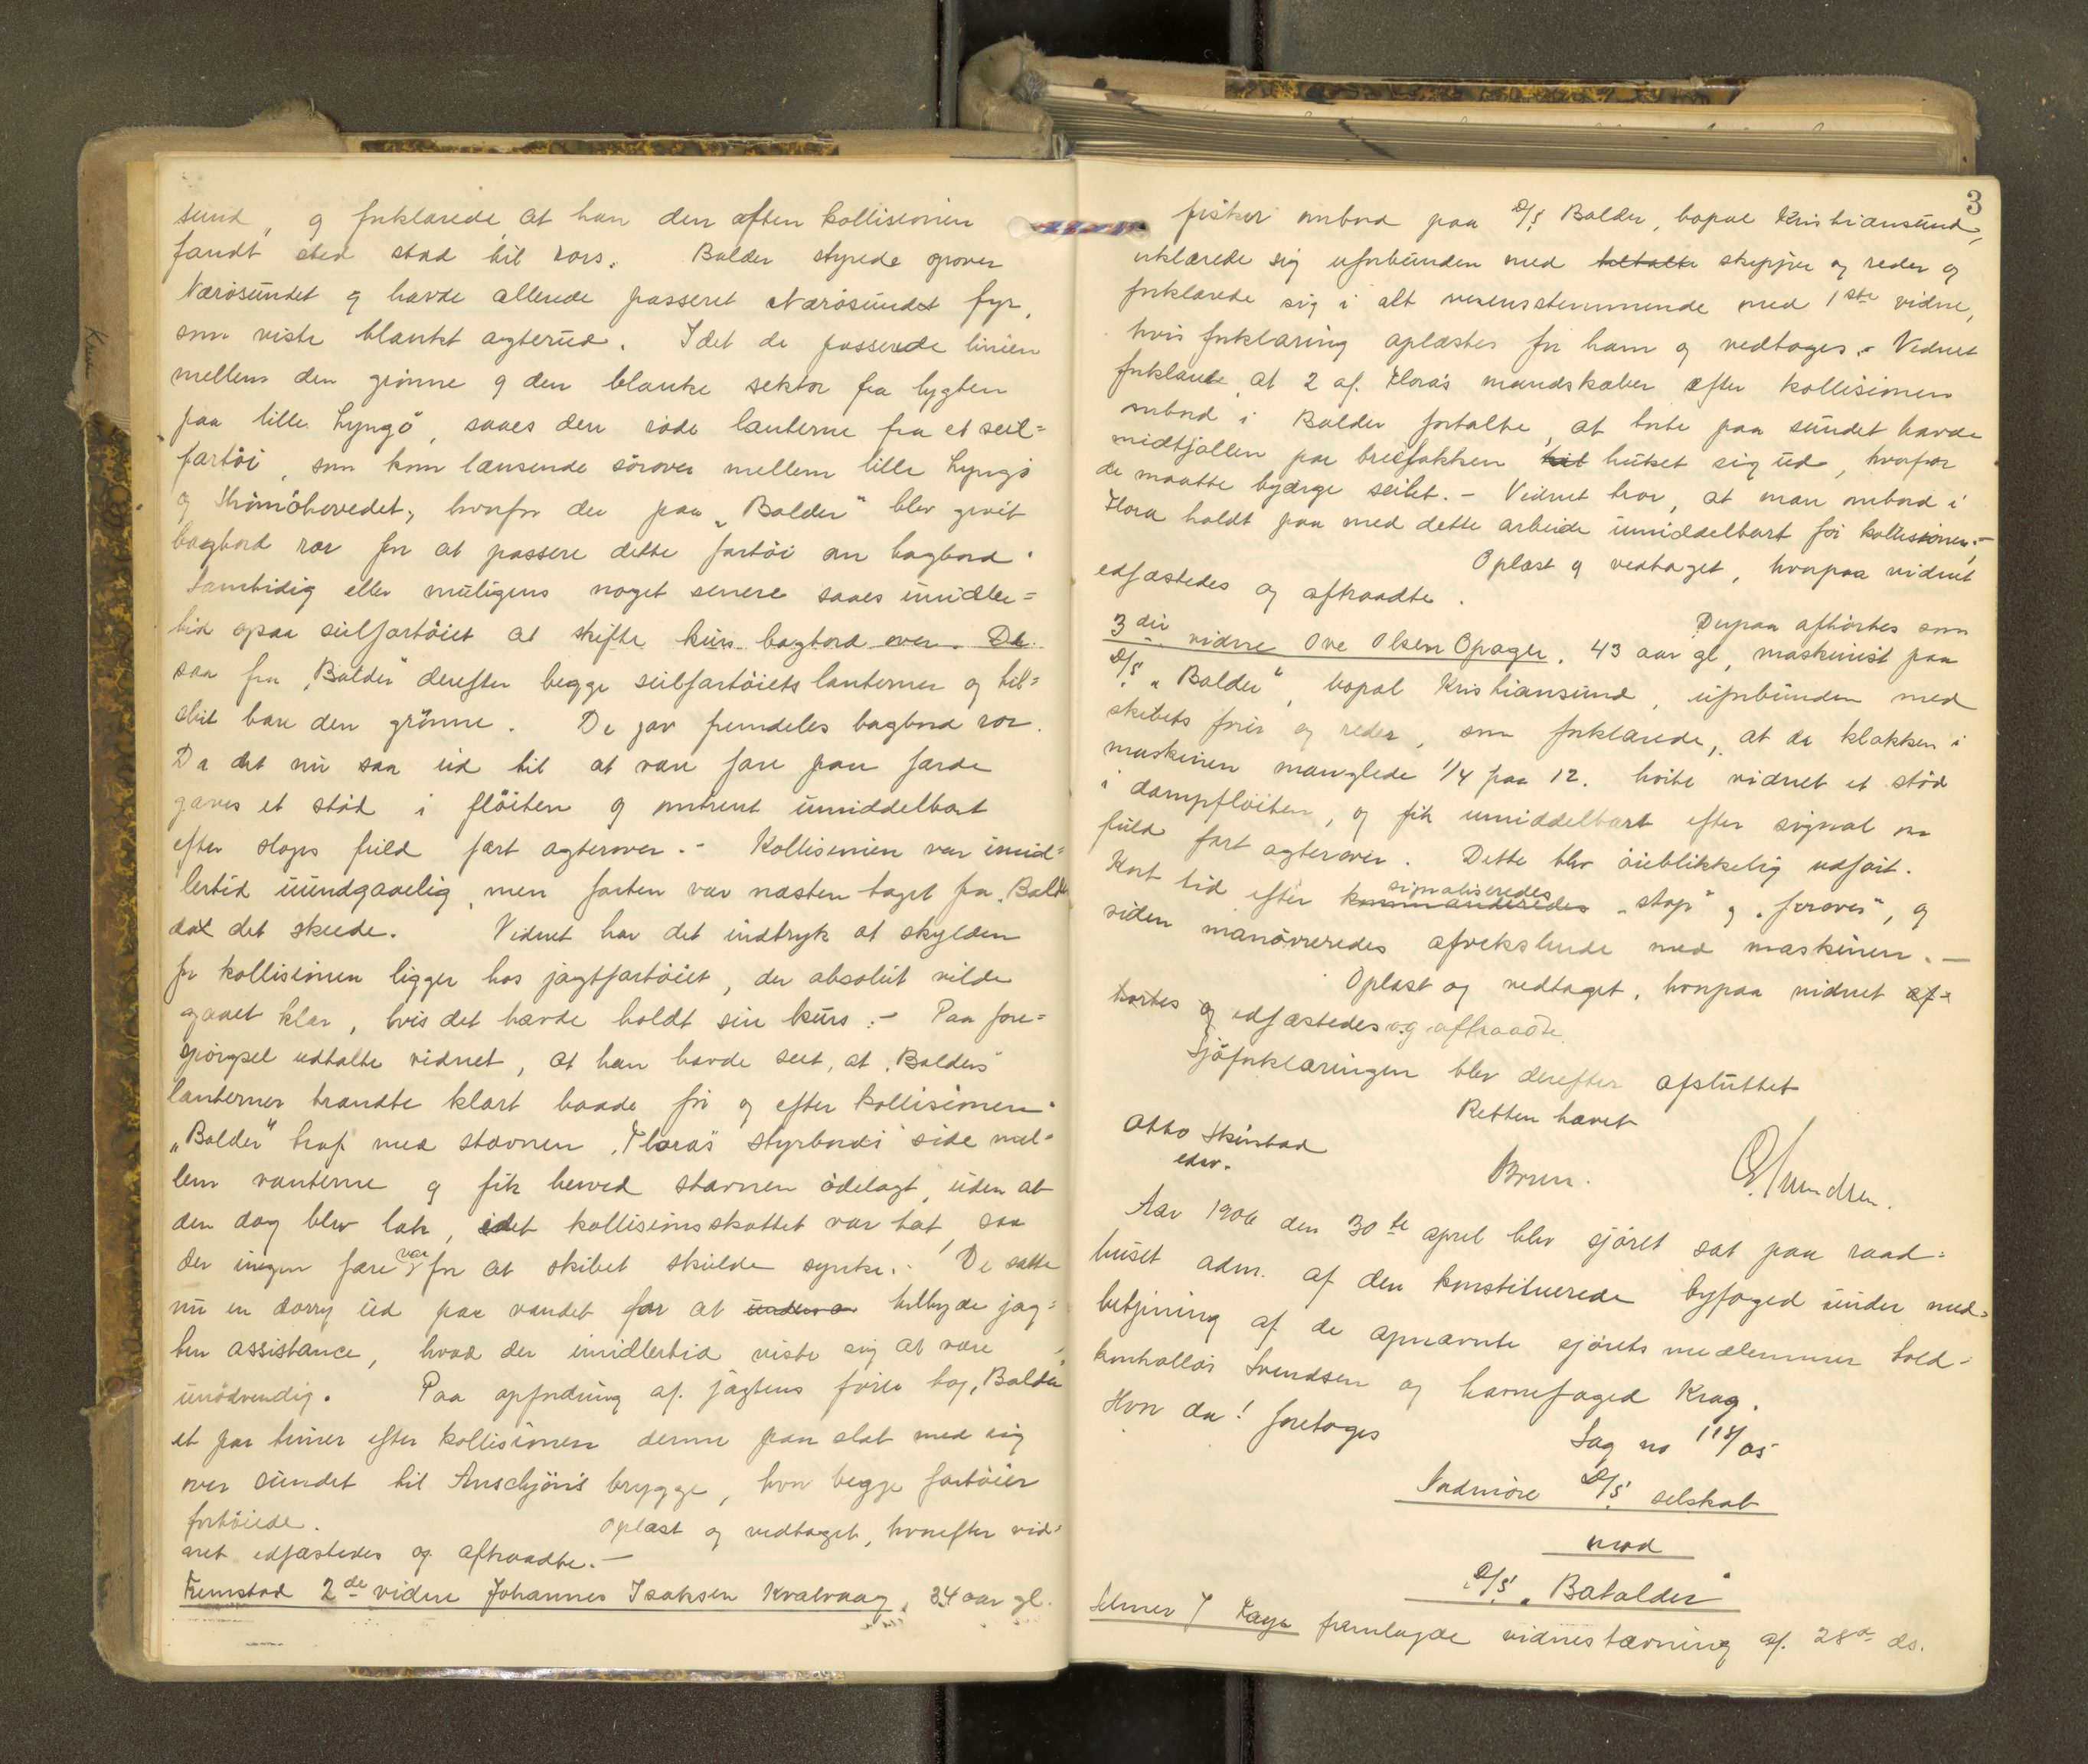 sund, og forklarede, at han den aften kollisionen
fandt sted stod til rors. Balder styrede opover
Nærøsundet og havde allerede passeret Nærøsundet fyr,
som viste blankt agterud. Idet de passerede linien
mellem den grønne og den blanke sektor fra lygten
paa lille Lyngø, saaes den røde lanterne fra et seil=
fartøi, som kom lænsende sørover mellem lille Lyngø
og hovedet, hvorfor der paa "Balder" blev givet
bagbord ror for at passere dette fartøi om bagbord.
Samtidig eller muligens noget senere saaes imidler=
tid ogsaa seilfartøiet at skifte kurs bagbord over. De
saa fra "Balder" derefter begge seilfartøiets lanterner og til=
slut bare den grønne. De gav fremdeles bagbord ror.
Da det nu saa ud til at være fare paa færde
gaves et stød i fløiten og omtrent umiddelbart
efter sloges fuld fart agterover. - Kollisionen var imid=
lertid uundgaaelig, men farten var næsten taget fra "Balder"
da det skede. Vidnet har det indtryk at skylden
for kollisionen ligger hos jagtfartøiet, der absolut vilde
gaaet klar, hvis det havde holdt sin kurs. - Paa fore=
spørgsel udtalte vidnet, at han havde seet, at "Balders"
lanterner brændte klart baade før og efter kollisionen.
"Balder" traf med stævnen "Flora's" styrbords side mel=
lem vanterne og fik herved stævnen ødelagt, uden at
den dog blev læk, idet kollisionsskottet var tæt, saa
der ingen fare var for at skibet skulde synke. - De satte
nu en dorry ud paa vandet for at tilbyde jag=
ten assistance, hvad der imidlertid viste sig at være
unødvendig. Paa opfordring af jagtens fører tog "Balder"
et par timer efter kollisionen denne paa slæb med sig
over sundet til brygge, hvor begge fartøier
fortøiede. Oplæst og vedtaget, hvorefter vid=
net edfæstedes og aftraadte. -
Fremstod 2de vidne Johannes Isaksen Kvalvaag, 34 aar gl.
3
fisker ombord paa D/S Balder, bopæl Kristiansund,
erklærede sig uforbunden med skipper og reder og
forklarede sig i alt overensstemmende med 1ste vidne,
hvis forklaring oplæstes for ham og vedtoges. - Vidnet
forklarede, at 2 af Flora's mandskaber efter kollisionen
ombord i Balder fortalte, at borte paa sundet havde
midtfallen paa breifokken huket sig ud, hvorfor
de maatte bjærge seilet. - Vidnet tror, at man ombord i
Flora holdt paa med dette arbeide umiddelbart før kollisionen. -
Oplæst og vedtaget, hvorpaa vidnet
edfæstedes og aftraadte.
Derpaa afhørtes som
3die vidne Ove Olsen Opager, 43 aar gl, maskinist paa
D/S "Balder", bopæl Kristiansund, uforbunden med
skibets fører og reder, som forklarede, at da klokken i
maskinen manglede 1/4 paa 12. hørte vidnet et stød
i dampfløiten, og fik umiddelbart efter signal om
fuld fart agterover. Dette blev øieblikkelig udført.
Kort tid efter kommanderedes signaliseredes "stop" og "forover", og
siden manøvreredes afvekslende med maskinen. -
Oplæst og vedtaget, hvorpaa vidnet af=
hørtes og edfæstedes og aftraadte.
Sjøforklaringen blev derefter afsluttet
Retten hævet
Otto Skinstad
edsv.
Brun.
Svendsen.
Aar 1906 den 30te april blev sjøret sat paa raad=
huset adm. af den konstituerede byfoged under med=
betjening af de opnævnte sjøretsmedlemmer told=
kontrollør Svendsen og havnefoged Krag.
Hvor da! foretoges
Sag no 118/05
Nordmøre D/S selskab
mod
D/S "Batalder"
fremlagde vidnestævning af 28de ds.